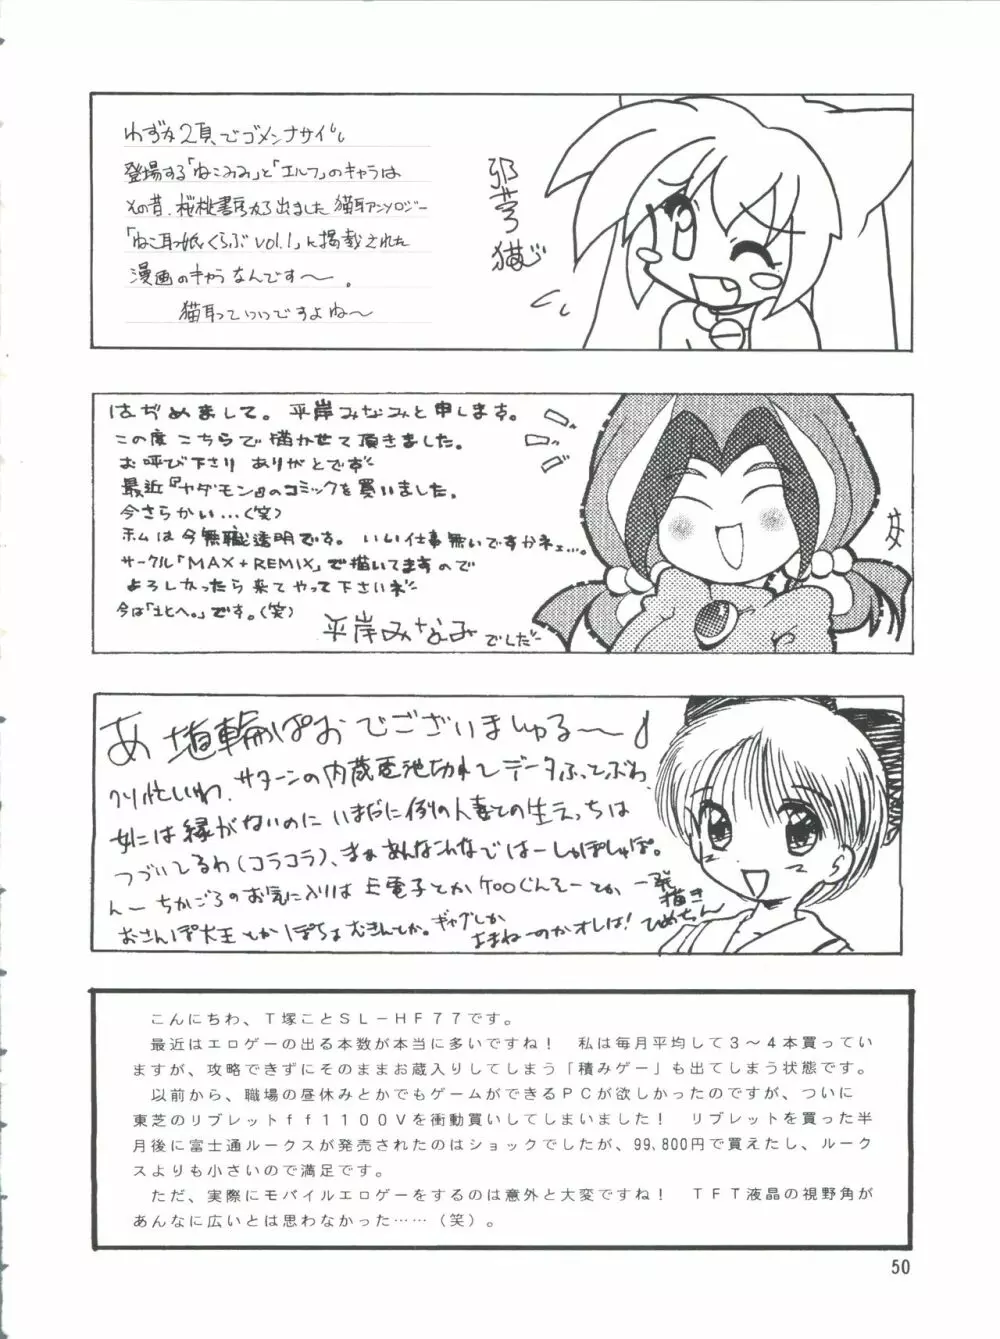 わずか2頁でゴメンナサイ
登場する「ねこみみ」と「エルフ」のキャラは
その昔、桜桃書房から出ました猫耳アンソロジー
「ねこ耳っ娘くらぶvol.1」に掲載された
漫画のキャラなんです〜。
猫耳っていいですよね〜
はぢめまして。平岸みなみと申します。
この度こちらで描かせて頂きました。
お呼び下さり ありがとです
最近『ヤダモン』のコミックを買いました。
今さらかい…(笑)
ホムは今無職透明です。いい仕事無いですかネェ…。
サークル「MAX+REMIX」で描いてますので
よろしかったら来てやって下さいネ
今は「北へ。」です。(笑)
平岸みなみでした
あ 埴輪ぱおでございましゅる〜♪
クソ忙しいわ、サターンの内蔵電池切れてデータふっとぶわ
女には縁がないのにいまだに例の人妻との生えっちは
つづいてるわ(コラコラ)、まぁあんなこんなではーしゅぽしゅぽ。
んーちかごろのお気に入りは
おさんぽ大王とか
一発描き
ひめちゃん
こんにちわ、T塚ことSL−HF77です。
最近はエロゲーの出る本数が本当に多いですね! 私は毎月平均して3〜4本買ってい
ますが、攻略できずにそのままお蔵入りしてしまう「積みゲー」も出てしまう状態です。
以前から、職場の昼休みとかでもゲームができるPCが欲しかったのですが、ついに
東芝のリブレットff1100Vを衝動買いしてしまいました! リブレットを買った半
月後に富士通ルークスが発売されたのはショックでしたが、99,800円で買えたし、ルーク
スよりも小さいので満足です。
ただ、実際にモバイルエロゲーをするのは意外と大変ですね! TFT液晶の視野角が
あんなに広いとは思わなかった……(笑)。
50